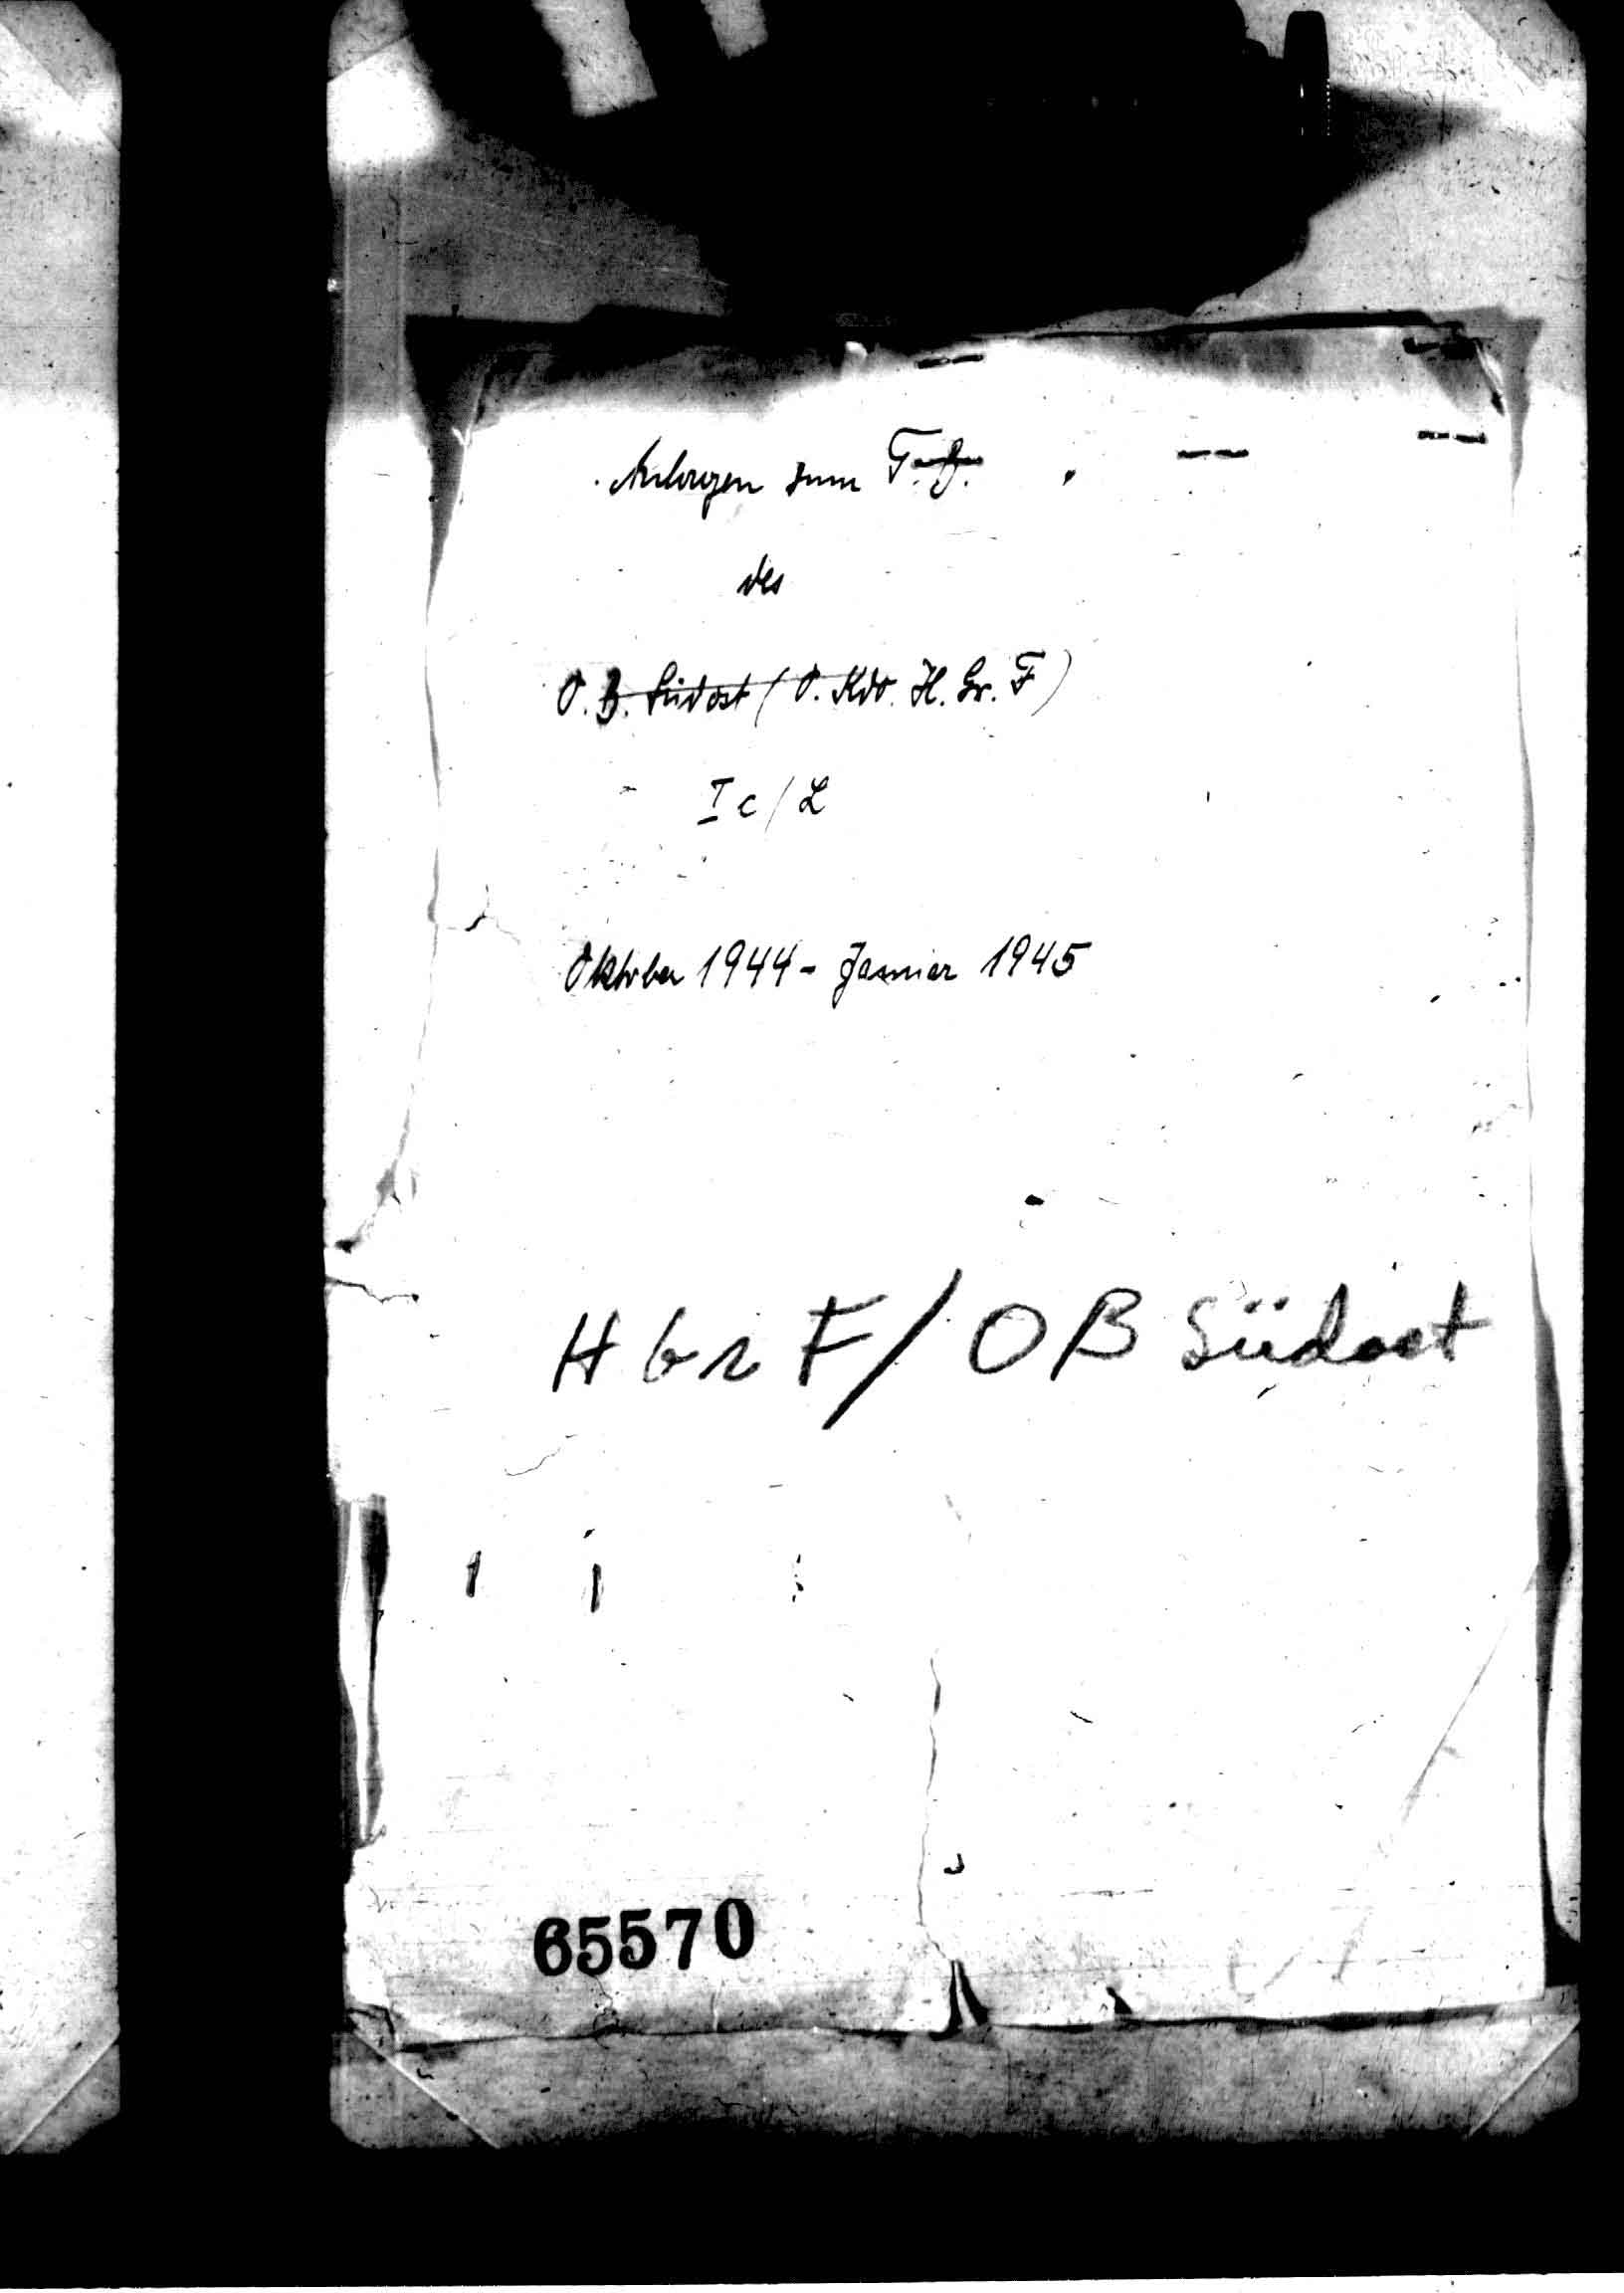 Anlagen zum T.B.
des
O.B. Südost (O. Kdo. H. Gr. F)
I c / L
Oktober 1944 - Januar 1945
H Gr F / OB Südost
65570